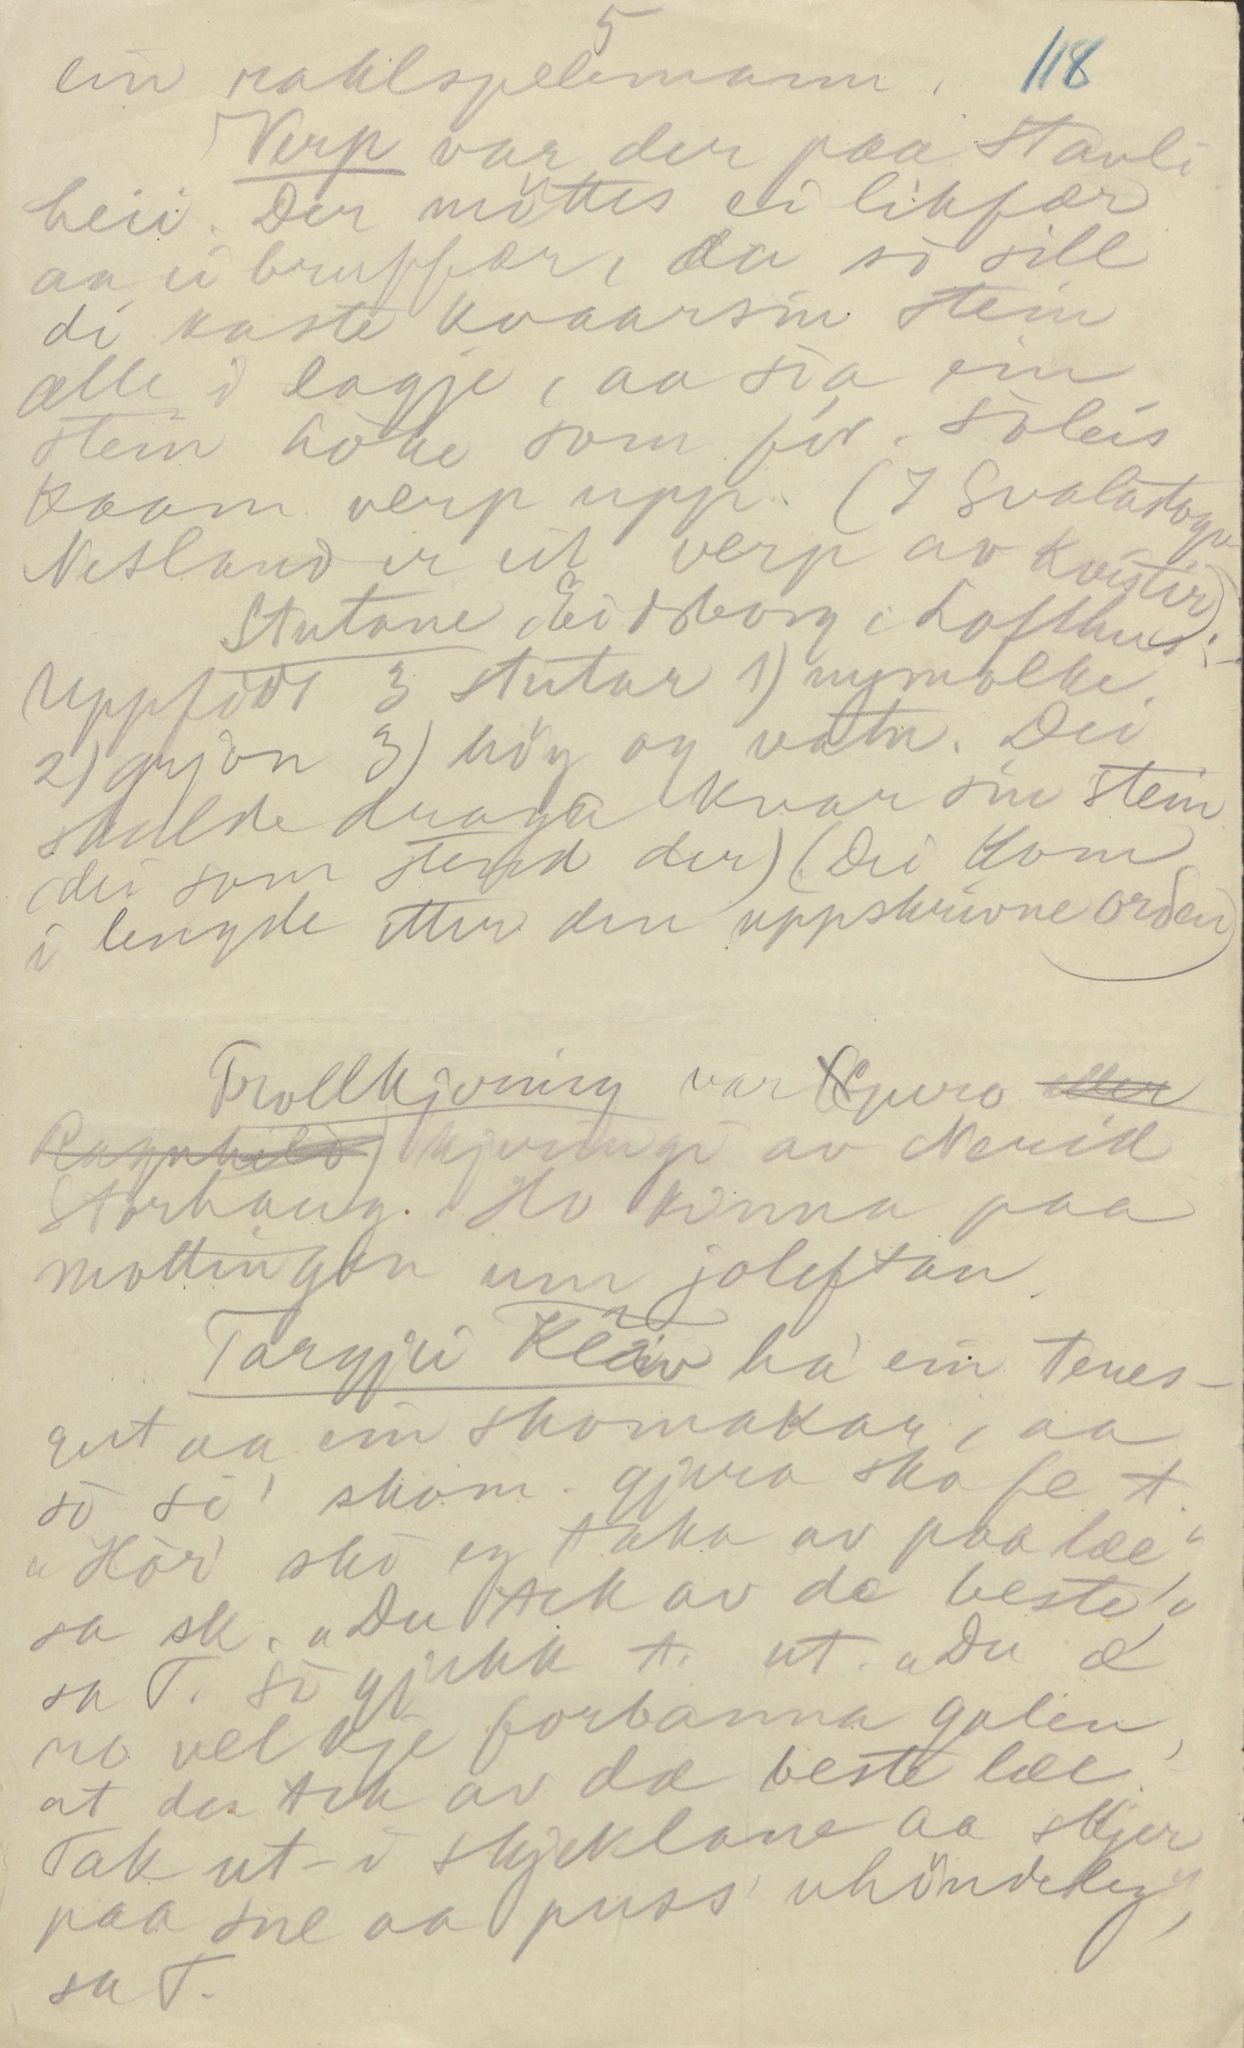 5
118
ein rakl spelemann.
Verp var der paa Stavli
heii. Der möttes ei likfær
aa ei bruffær, da sò sill
di kaste kvaar sin stein
alle i lagje, aa sia ein
stein höke som fór. Söleis
kaam verp upp. (I Svalatoge
Nesland er eit verp av kvistir)
Stutane, Eidsborg, Lofthus:-
uppfödt 3 stutar 1) nymolke.
2) grjon 3) höy og vatn. Dei
skulde draga kvar sin stein
(dei som stend der) (Dei kom
i lengde etter den uppskrivne orden)
Trollkjering var Guro eller
Ragnhild) kjeringi av Nerid
Storhaug. Ho kinna paa
mottingen um joleftan.
Targjei Kleiv ha ein tenes-
gut aa ein skomakar, aa
sò sò' skom. gjera sko fe T.
"Hör' sko eg taka av paa læe"
sa sk. "Du tek av dæ beste"
sa T. Sò gjekk T. ut. "Du æ
no vel kje forbanna galen,
at du tek av dæ beste læe.
Tak ut-i skjeklane aa skjer
paa sne aa puss' uhöndeleg",
sa T.